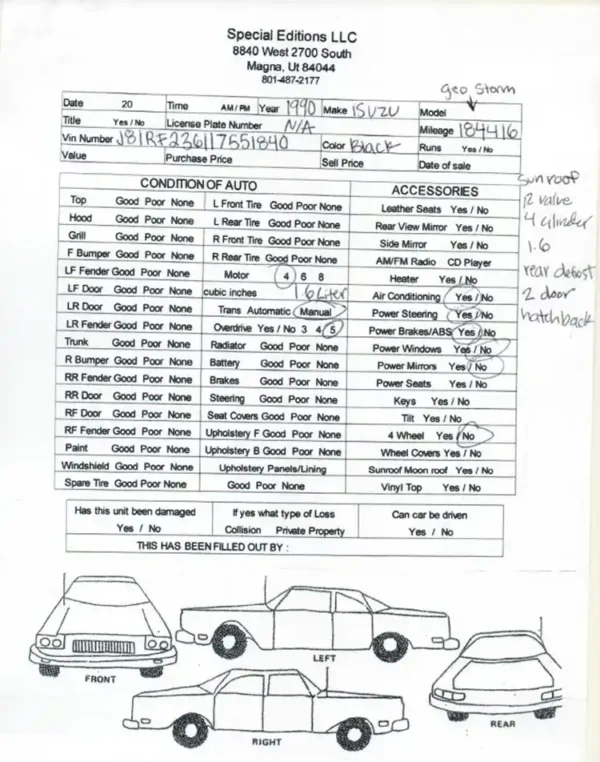 Special Editions LLC
8840 West 2700 South
Magna, Ut 84044
801-487-2177
geo Storm
Date 20 Time AM/PM Year 1990 Make ISUZU Model
Title Yes / No License Plate Number N/A Mileage 184416
Vin Number J81RF236117551840 Color Black Runs Yes / No
Value Purchase Price Sell Price Date of sale
CONDITION OF AUTO ACCESSORIES
Top Good Poor None L Front Tire Good Poor None Leather Seats Yes / No
Hood Good Poor None L Rear Tire Good Poor None Rear View Mirror Yes / No
Grill Good Poor None R Front Tire Good Poor None Side Mirror Yes / No
F Bumper Good Poor None R Rear Tire Good Poor None AM/FM Radio CD Player
LF Fender Good Poor None Motor 4 6 8 Heater Yes / No
LF Door Good Poor None cubic inches 1.6 Liter Air Conditioning Yes / No
LR Door Good Poor None Trans Automatic Manual Power Steering Yes / No
LR Fender Good Poor None Overdrive Yes / No 3 4 5 Power Brakes/ABS Yes / No
Trunk Good Poor None Radiator Good Poor None Power Windows Yes / No
R Bumper Good Poor None Battery Good Poor None Power Mirrors Yes / No
RR Fender Good Poor None Brakes Good Poor None Power Seats Yes / No
RR Door Good Poor None Steering Good Poor None Keys Yes / No
RF Door Good Poor None Seat Covers Good Poor None Tilt Yes / No
RF Fender Good Poor None Upholstery F Good Poor None 4 Wheel Yes / No
Paint Good Poor None Upholstery B Good Poor None Wheel Covers Yes / No
Windshield Good Poor None Upholstery Panels/Lining Sunroof Moon roof Yes / No
Spare Tire Good Poor None Good Poor None Vinyl Top Yes / No
sunroof
12 valve
4 cylinder
1.6
rear defrost
2 door
hatchback
Has this unit been damaged If yes what type of Loss Can car be driven
Yes / No Collision Private Property Yes / No
THIS HAS BEEN FILLED OUT BY :
LEFT
FRONT
REAR
RIGHT